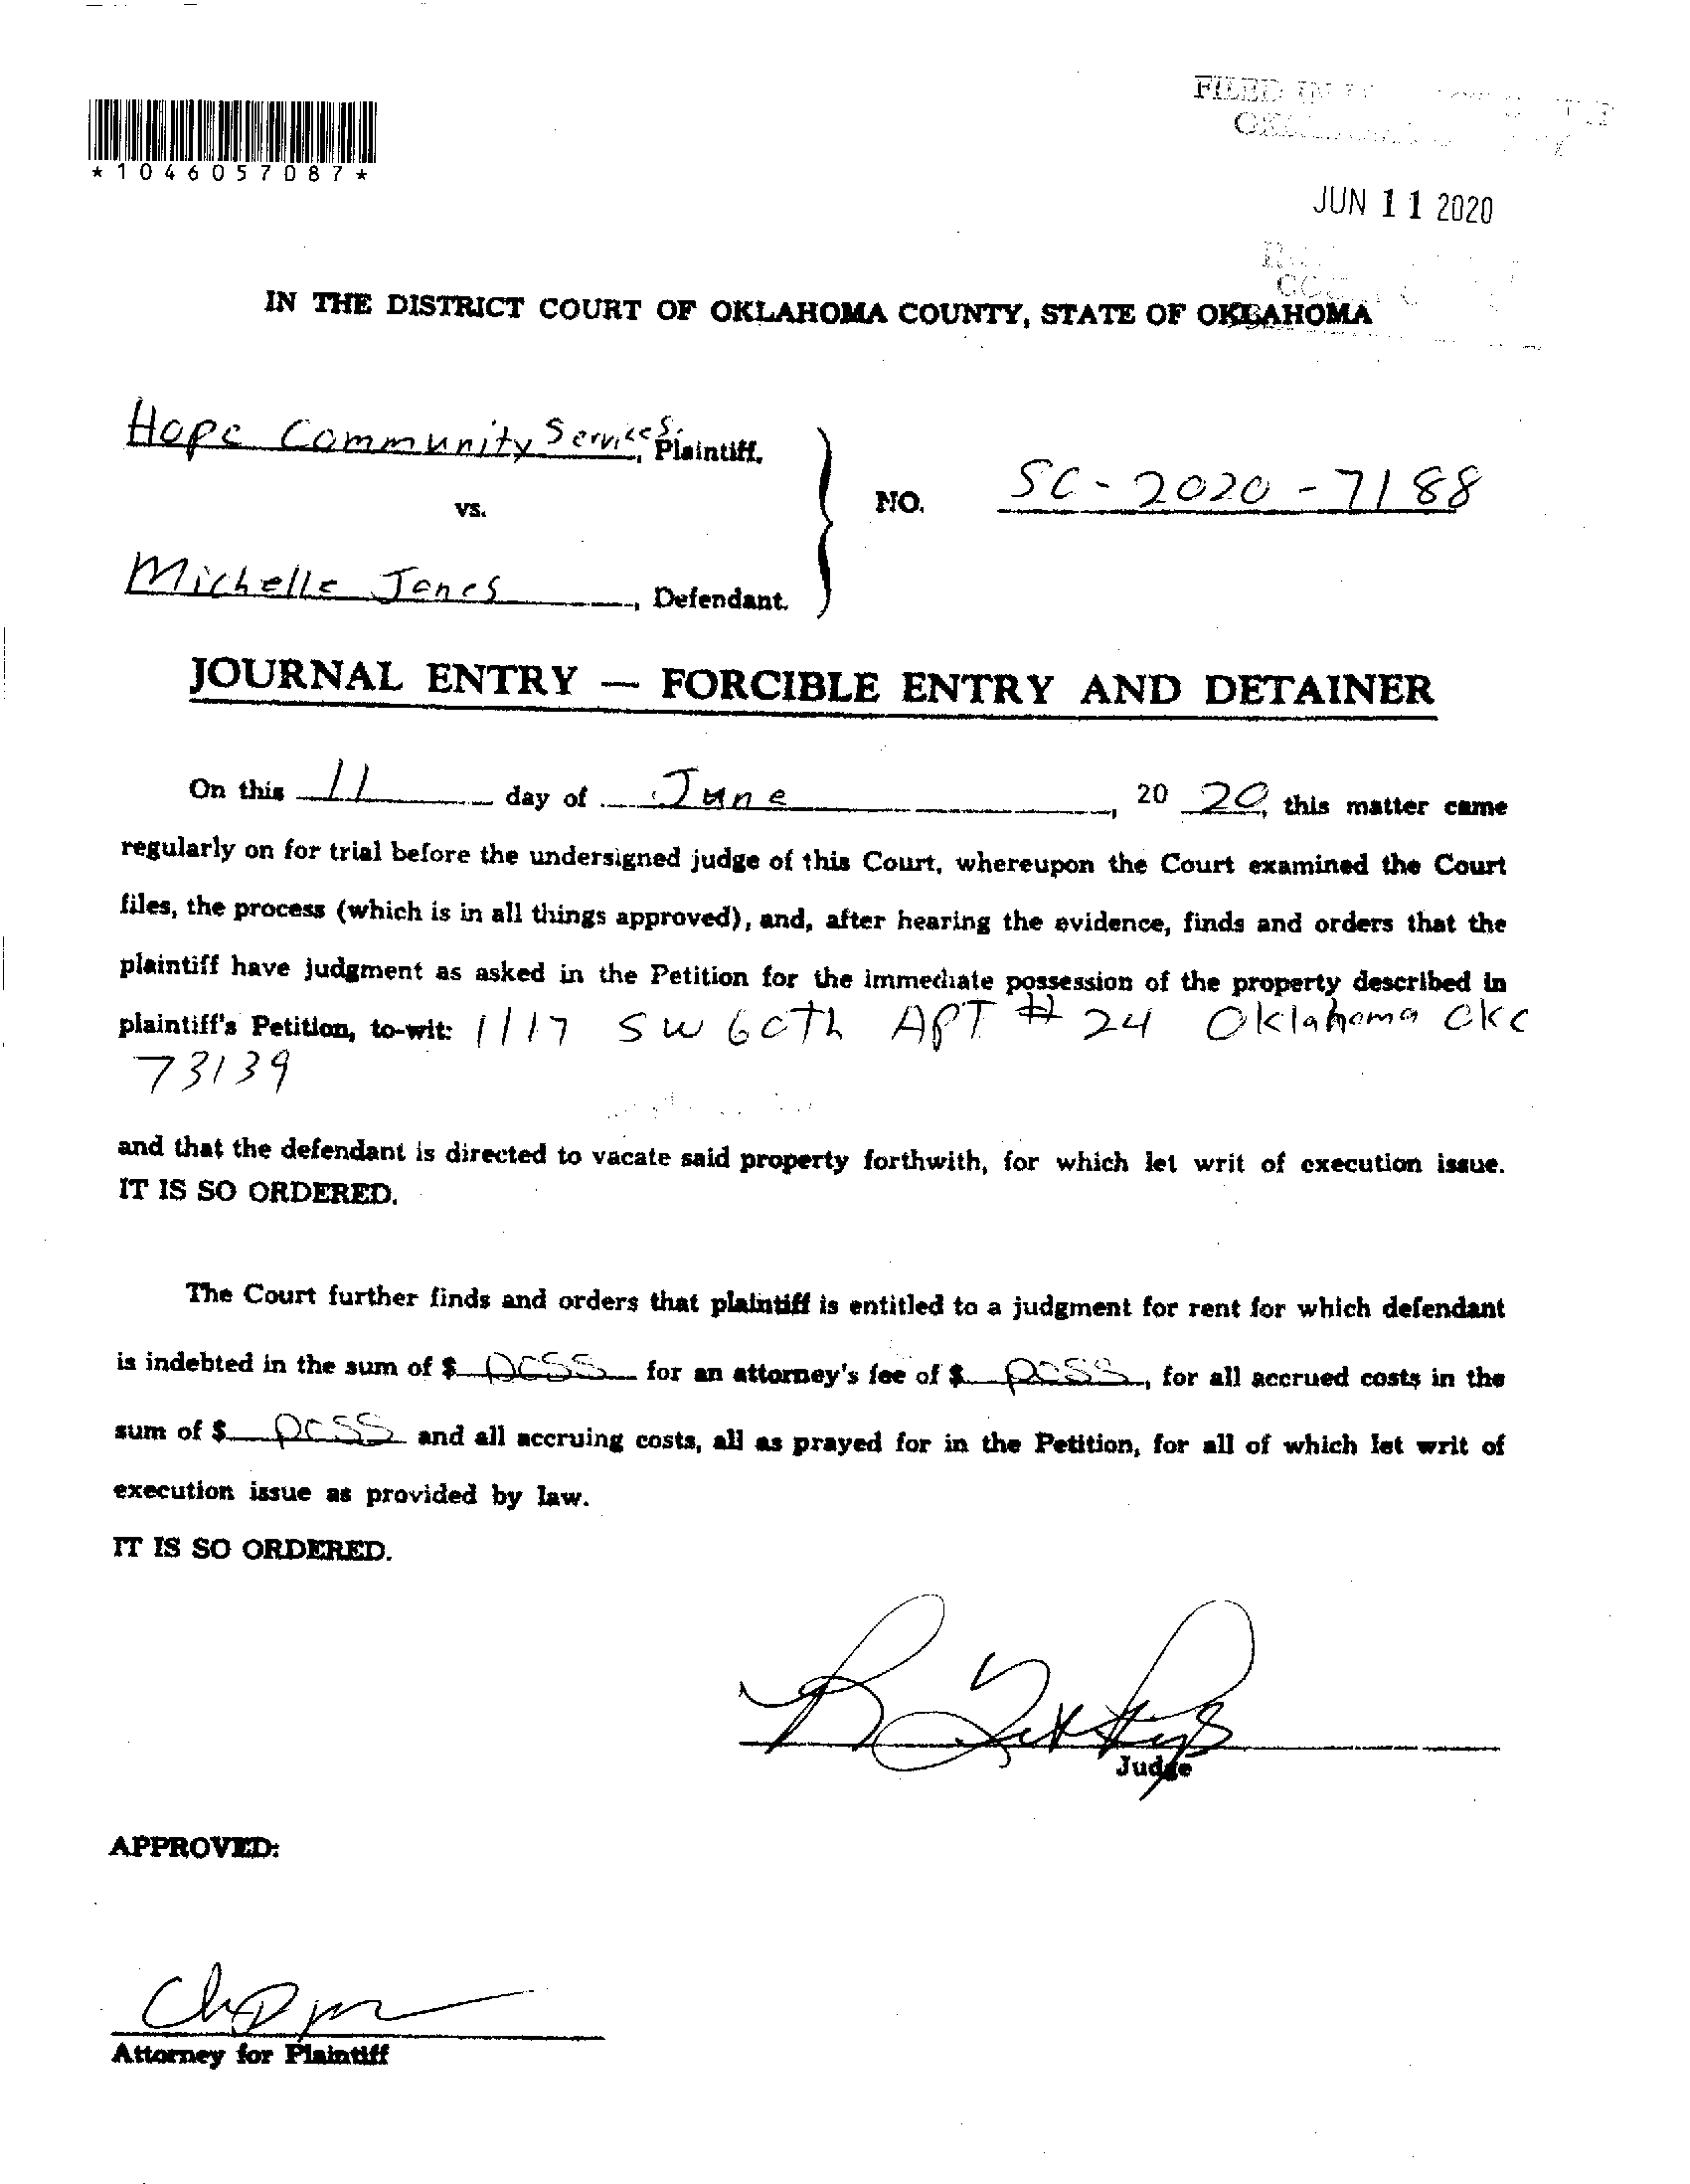 *1046057087*
FILED IN
JUN 11 2020
IN THE DISTRICT COURT OF OKLAHOMA COUNTY, STATE OF OKLAHOMA
Hope Community Services, Plaintiff,
vs.
NO. SC-2020-7188
Michelle Jones, Defendant.
JOURNAL ENTRY — FORCIBLE ENTRY AND DETAINER
On this 11 day of June, 20 20, this matter came
regularly on for trial before the undersigned judge of this Court, whereupon the Court examined the Court
files, the process (which is in all things approved), and, after hearing the evidence, finds and orders that the
plaintiff have judgment as asked in the Petition for the immediate possession of the property described in
plaintiff's Petition, to-wit: 1117 SW 60th APT # 24 Oklahoma OKC
73139
and that the defendant is directed to vacate said property forthwith, for which let writ of execution issue.
IT IS SO ORDERED.
The Court further finds and orders that plaintiff is entitled to a judgment for rent for which defendant
is indebted in the sum of $ poss for an attorney's fee of $ poss, for all accrued costs in the
sum of $ poss and all accruing costs, all as prayed for in the Petition, for all of which let writ of
execution issue as provided by law.
IT IS SO ORDERED.
Judge
APPROVED:
Attorney for Plaintiff